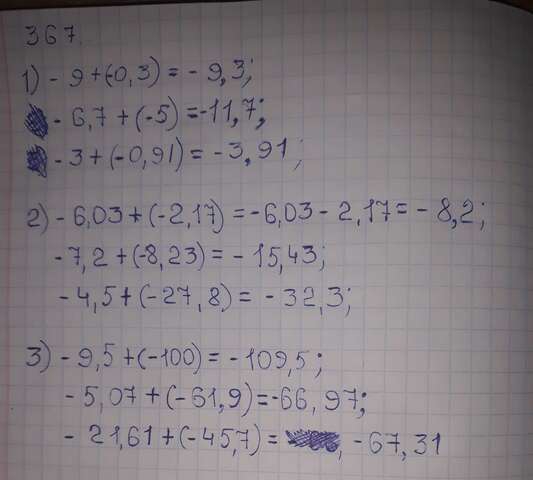 367.
1) - 9 + (-0,3) = - 9,3;
- 6,7 + (-5) = -11,7;
- 3 + (-0,91) = - 3,91;
2) - 6,03 + (-2,17) = -6,03 - 2,17 = - 8,2;
- 7,2 + (-8,23) = - 15,43;
- 4,5 + (-27,8) = - 32,3;
3) - 9,5 + (-100) = - 109,5;
- 5,07 + (-61,9) = -66,97;
- 21,61 + (-45,7) = , - 67,31